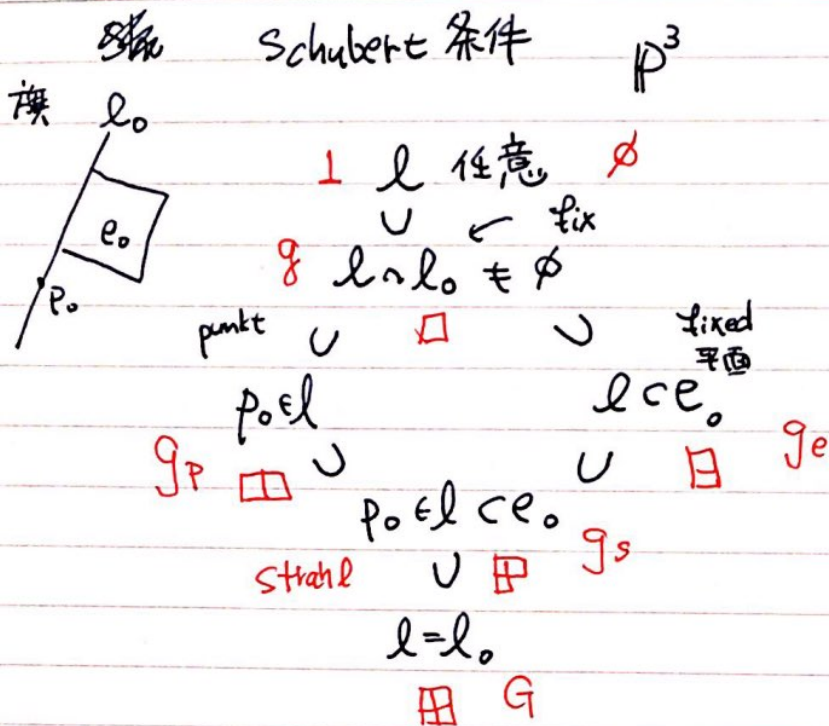 Schubert 条件 ℙ³
旗 l₀
1 l 任意 φ
e₀ ∪ ← fix
g l∩l₀ ≠ φ
p₀
punkt ∪ □ ∪ fixed
平面
p₀∈l l⊂e₀
gₚ ∪ ∪ gₑ
p₀∈l⊂e₀
strahl ∪ gₛ
l=l₀
G